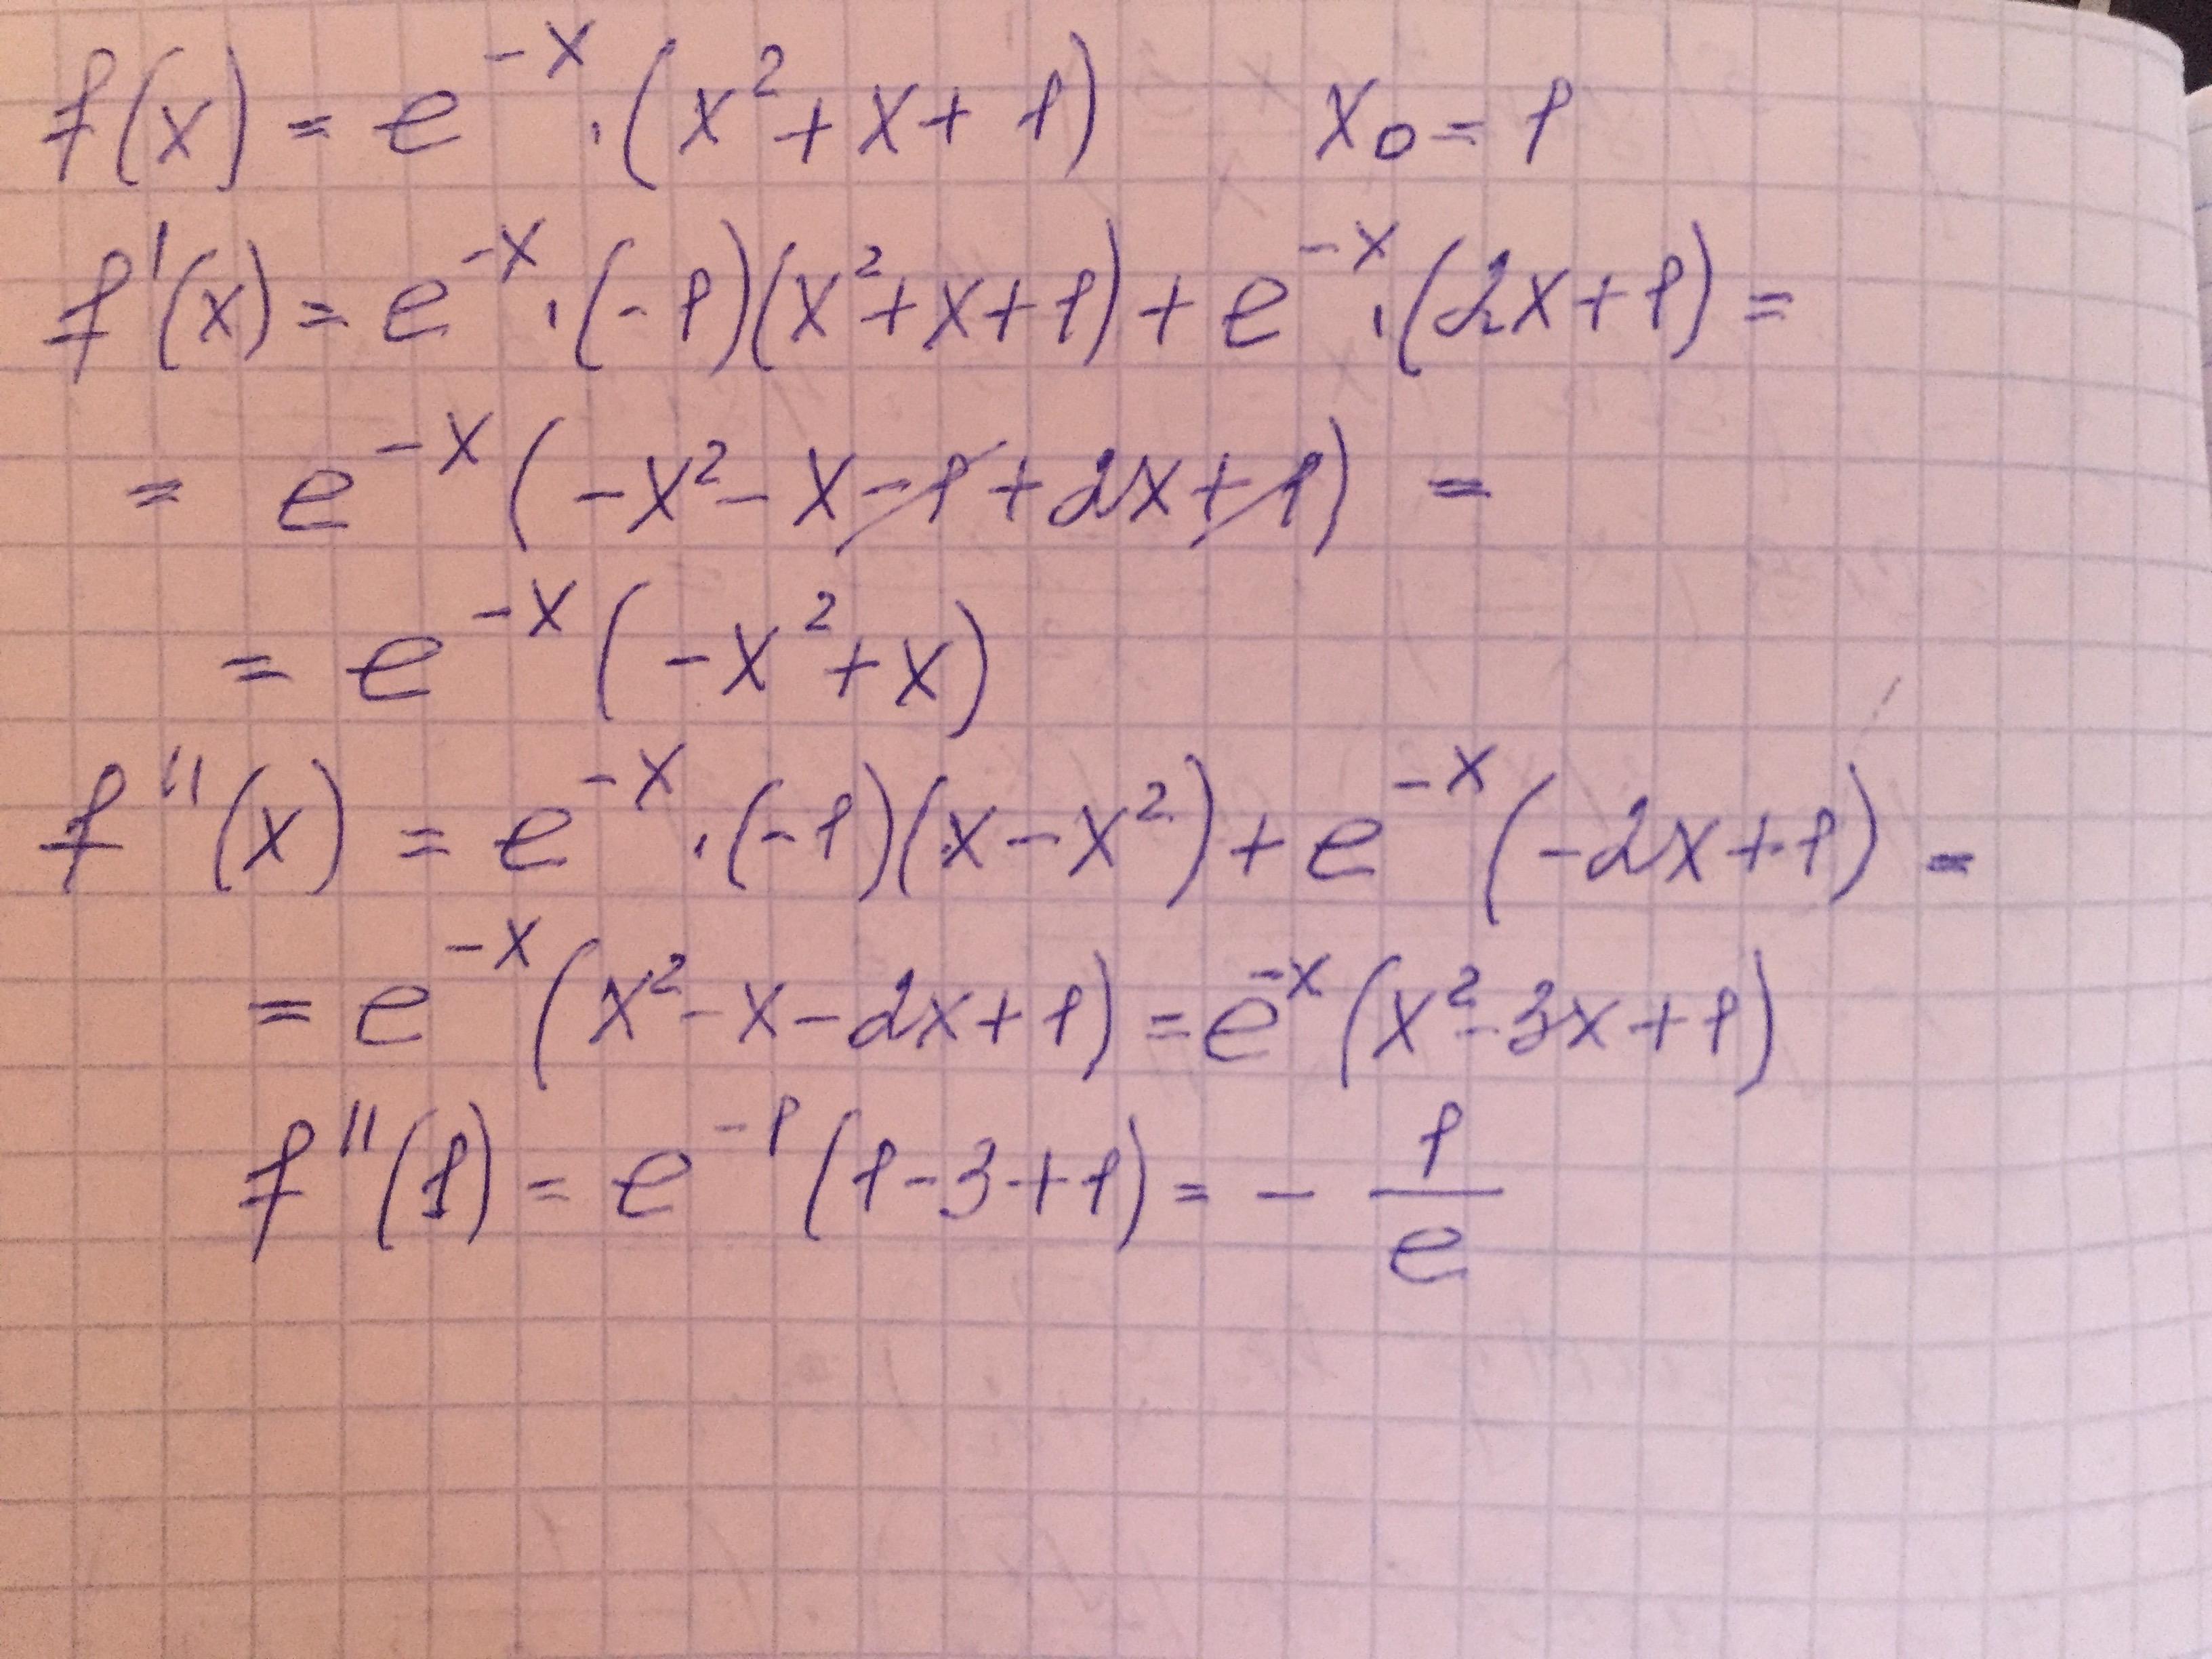 f(x) = e^{-x} · (x² + x + 1)    x₀ = 1
f'(x) = e^{-x} · (-1)(x² + x + 1) + e^{-x} · (2x + 1) =
= e^{-x} (-x² - x - 1 + 2x + 1) =
= e^{-x} (-x² + x)
f''(x) = e^{-x} · (-1)(x - x²) + e^{-x} (-2x + 1) =
= e^{-x} (x² - x - 2x + 1) = e^{-x} (x² - 3x + 1)
f''(1) = e^{-1} (1 - 3 + 1) = - 1/e